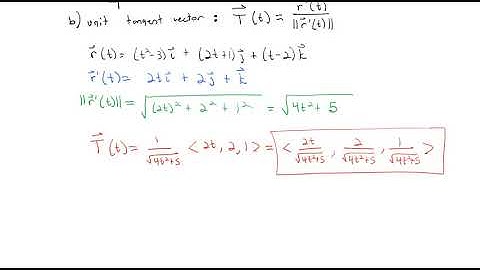 b) unit tangent vector : T⃗(t) = r⃗'(t) / ||r⃗'(t)||
r⃗(t) = (t²-3)i⃗ + (2t+1)j⃗ + (t-2)k⃗
r⃗'(t) = 2ti⃗ + 2j⃗ + k⃗
||r⃗'(t)|| = √((2t)² + 2² + 1²) = √(4t² + 5)
T⃗(t) = 1/√(4t²+5) <2t, 2, 1> = < 2t/√(4t²+5) , 2/√(4t²+5) , 1/√(4t²+5) >